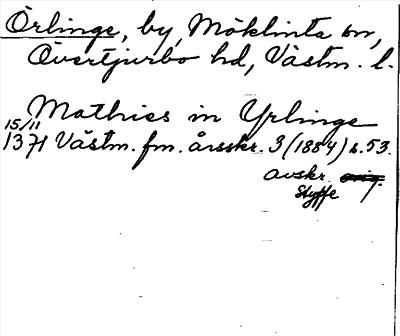 Örlinge, by, Möklinta sn,
Övertjurbo hd, Västm. l.
Mathies in Yrlinge
15/11
1371 Västm. fm. årsskr. 3 (1884) s. 53.
avskr. orig.
Styffe